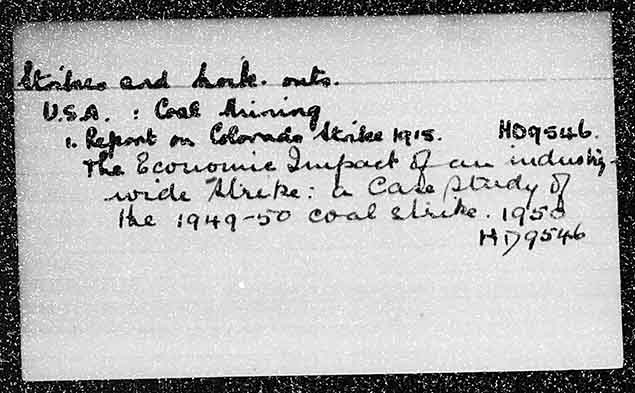 Strikes and lock-outs.
U.S.A. : Coal Mining
1. Report on Colorado Strike 1915. HD9546.
The Economic Impact of an industry-
wide Strike: a Case Study of
the 1949-50 coal strike. 1950
HD9546